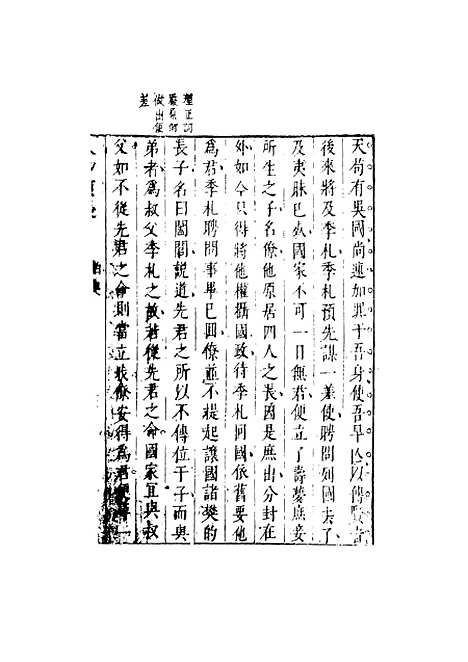 理正詞
嚴是何
做出便
差
天苟有吳國尚速如罪于吾身使吾早亡以傳賢書
後來將及季札季札預先謀一差使聘問列國去了
及夷昧已歿國家不可一日無君便立了壽夢庶妾
所生之子名僚他原居四人之長因是庶出分封在
外如今只得將他權攝國政待季札回國依舊要他
為君季札聘問事畢已回僚並不提起讓國諸樊的
長子名曰闔閭說道先君之所以不傳位于子而與
弟者為叔父季札之故若從先君之命國家宜與叔
父如不從先君之命則當立我僚安得為君